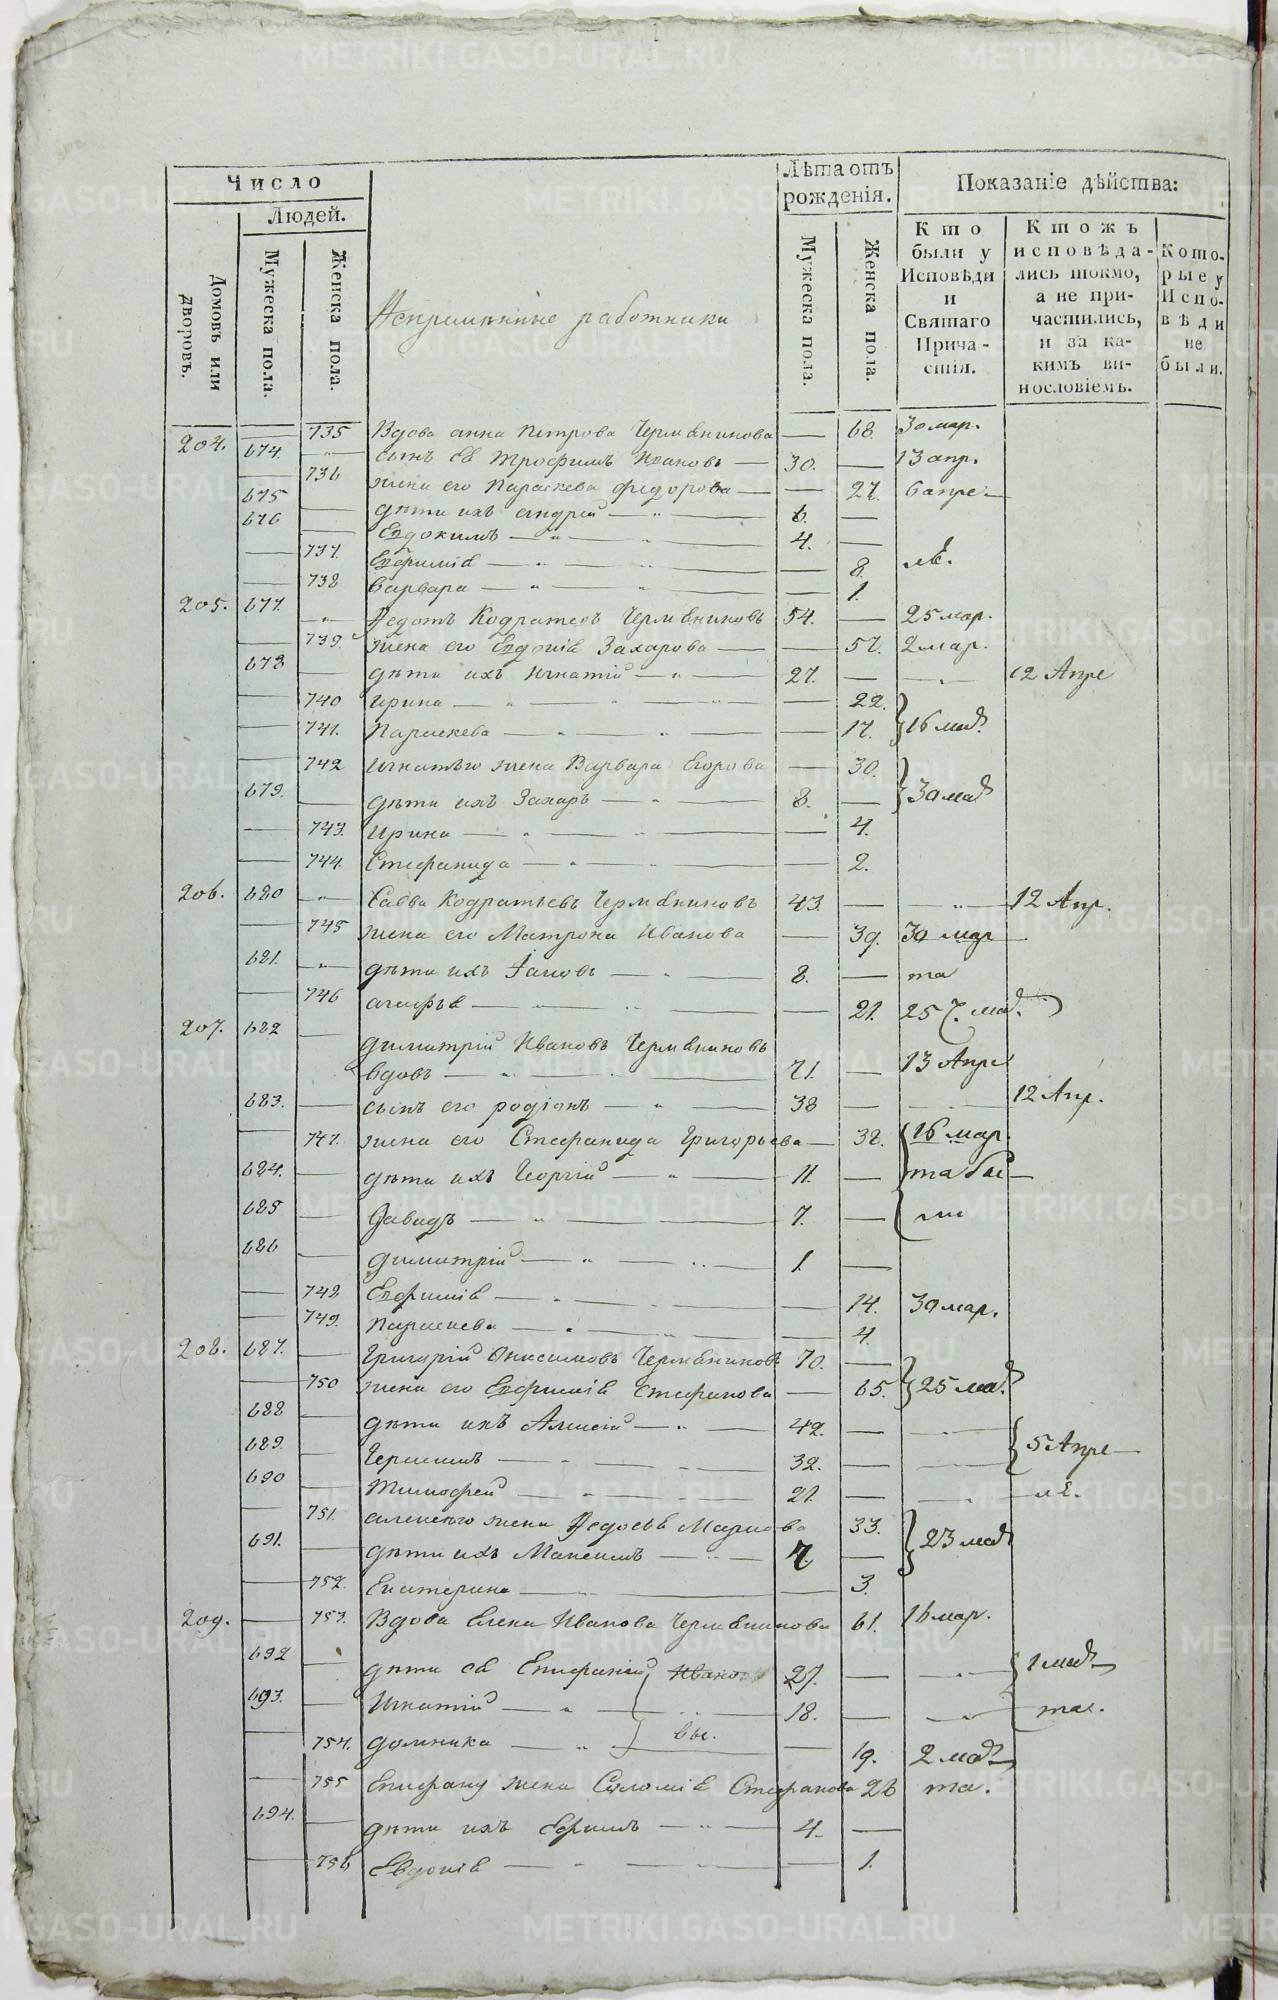 Число
Людей.
Домовъ или дворовъ.
Мужеска пола.
Женска пола.
Непременные работники
Лѣта отъ рожденія.
Мужеска пола.
Женска пола.
Показаніе дѣйства:
Кто были у Исповѣди и Святаго Причастія.
Ктожъ исповѣдались токмо, а не причастились, и за какимъ винословіемъ.
Которые у Исповѣди не были.
204. 735 Вдова анна петрова Чермянинова — 68. 30 мар.
674. сынъ ея трофимъ Ивановъ — 30. — 13 апр.
736 жена его Параскева федорова — — 27. 6 апре
675 — дѣти ихъ андрей — 6. —
676 — Евдокимъ — 4. —
— 737. Евфимія — — 8. мл.
— 738 варвара — — 1.
205. 677. Федотъ Кодратевъ Чермяниновъ 54. — 25 мар.
— 739. жена его Евдокія Захарова — — 57. 2 мар.
678 — дѣти ихъ игнатій — 27. — — 12 Апре
— 740 ирина — — 22.
— 741. Параскева — — 17. } 16 мар.
— 742 игнатью жена Варвара Егорова — 30.
679. — дѣти ихъ Захаръ — 8. — } 30 мар
— 743. ирина — — 4.
— 744. Стефанида — — 2.
206. 680 Савва Кодратьевъ Чермяниновъ 43. — — 12 Апр.
— 745 жена его Матрона Иванова — 39. 30 мар
681. дѣти ихъ Іаковъ — 8. — та
— 746 агафья — — 21. 25 мар.
207. 682 — димитрій Ивановъ Чермяниновъ
вдовъ — 71. — 13 Апре
683. — сынъ его родіонъ — 38 — — 12 Апр.
— 747. жена его Стефанида Григорьева — 38. 16 мар.
684. — дѣти ихъ Георгій — 11. —
685 — Давидъ — 7. —
686 — димитрій — 1. —
— 748. Евфимія — — 14. 30 мар.
— 749. параскева — — 4.
208. 687. — Григорій Онисимовъ Чермяниновъ 70. —
— 750 жена его Евфимія стефанова — 65. } 25 мар.
688 — дѣти ихъ Алексій — 42. — —
689. — Герасимъ — 32. — — { 5 Апре
690 — Тимофей — 21. — —
— 751. алексею жена Федосья Маркова 33.
691. — дѣти ихъ Максимъ — 7. — } 23 мар
— 752. Екатерина — — 3.
209. — 753. Вдова Елена Иванова Чермянинова 61. 16 мар.
692 — дѣти ея Епифаній Иванов 27. — — { 1 мар
693. — Игнатій — 18. — — та.
— 754. домника — вы. — 19. 2 мар
— 755 Епифану жена Саломія Стефанова 28 та.
694. — дѣти ихъ ефимъ — 4. —
— 756 Евдокія — — 1.
METRIKI.GASO-URAL.RU